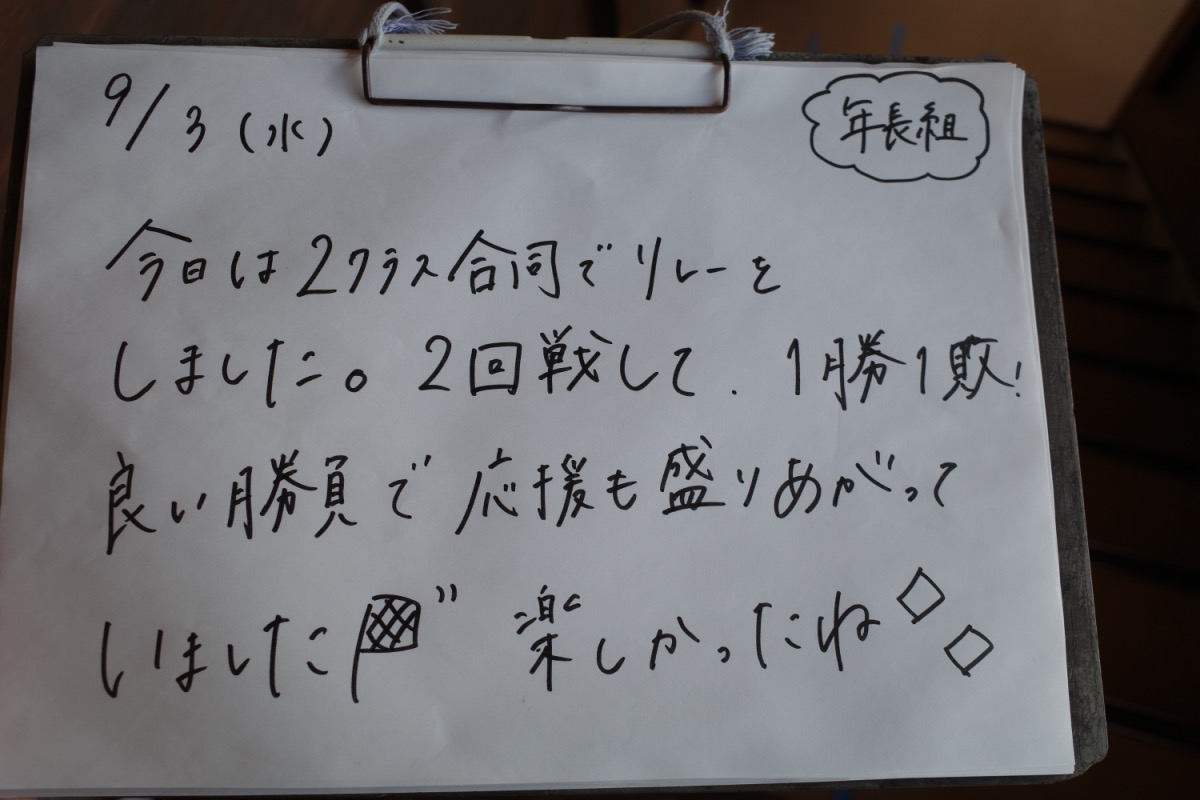 9/3(水)
年長組
今日は2クラス合同でリレーを
しました。2回戦して、1勝1敗!
良い勝負で応援も盛りあがって
いました 楽しかったね